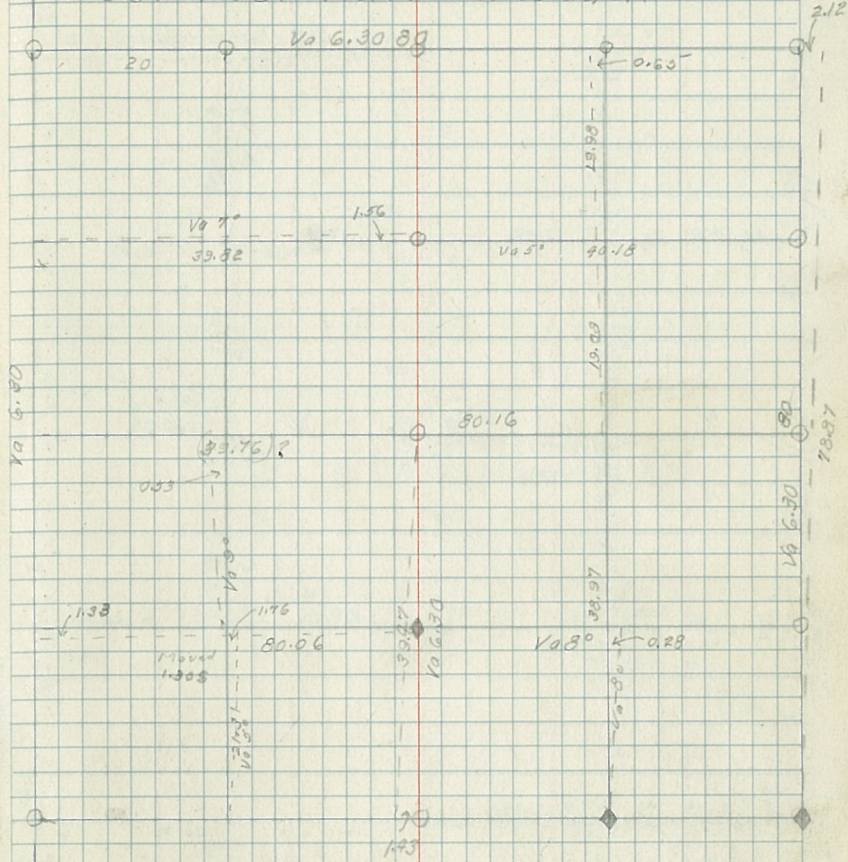 2.12
Va 6.30 80
20
0.65
19.98
1.56
Va 7°
39.82
Va 5°
40.18
19.00
Va 6.30
80.16
80
78.87
(39.76)?
0.53
Va 6.30
Va 9°
38.97
1.38
1.76
80.06
39.27
Va 6.30
Va 8°
0.28
Moved
1.30S
Va 8°
Va 5°
1.43